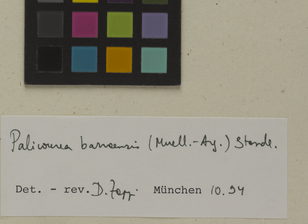 Palicourea barraensis (Muell.-Arg.) Standl.
Det. - rev. D. Zappi München 10.94